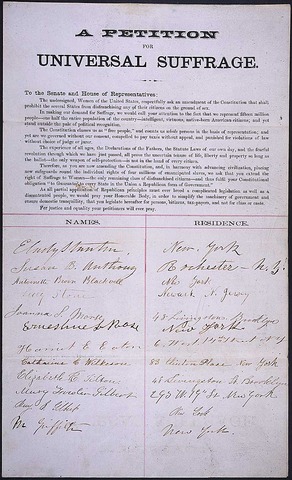 A PETITION
FOR
UNIVERSAL SUFFRAGE.
To the Senate and House of Representatives:
The undersigned, Women of the United States, respectfully ask an amendment of the Constitution that shall
prohibit the several States from disfranchising any of their citizens on the ground of sex.
In making our demand for Suffrage, we would call your attention to the fact that we represent fifteen million
people—one half the entire population of the country—intelligent, virtuous, native-born American citizens; and yet
stand outside the pale of political recognition.
The Constitution classes us as "free people," and counts us whole persons in the basis of representation; and
yet are we governed without our consent, compelled to pay taxes without appeal, and punished for violations of law
without choice of judge or juror.
The experience of all ages, the Declarations of the Fathers, the Statute Laws of our own day, and the fearful
revolution through which we have just passed, all prove the uncertain tenure of life, liberty and property so long as
the ballot—the only weapon of self-protection—is not in the hand of every citizen.
Therefore, as you are now amending the Constitution, and, in harmony with advancing civilization, placing
new safeguards round the individual rights of four millions of emancipated slaves, we ask that you extend the
right of Suffrage to Woman—the only remaining class of disfranchised citizens—and thus fulfil your Constitutional
obligation "to Guarantee to every State in the Union a Republican form of Government."
As all partial application of Republican principles must ever breed a complicated legislation as well as a
discontented people, we would pray your Honorable Body, in order to simplify the machinery of government and
ensure domestic tranquillity, that you legislate hereafter for persons, citizens, tax-payers, and not for class or caste.
For justice and equality your petitioners will ever pray.
NAMES. RESIDENCE.
E Cady Stanton New York
Susan B. Anthony Rochester - N.Y.
Antoinette Brown Blackwell New York
Lucy Stone Newark N. Jersey
Joanna S. Morse 48 Livingston Brooklyn
Ernestine L Rose New York
Harriet E. Eaton 6 West 14th Street N.Y
Catharine C. Wilkeson 83 Clinton Place New York
Elizabeth R. Tilton 48 Livingston St Brooklyn
Mary Fowler Gilbert 293 W 19th St New York
New York
M Griffith New York